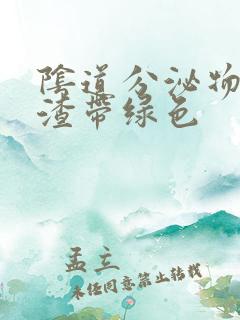 陰道分泌物
渣帶绿色
孟立
未经同意禁止转载